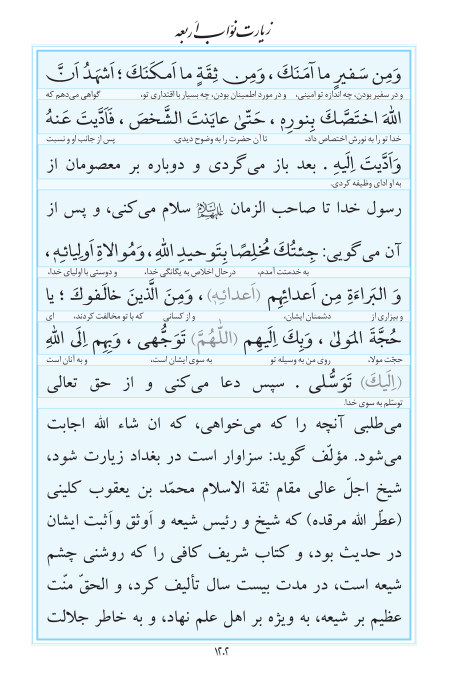 زیارت نوّاب اربعه
وَمِن سَفیرٍ ما آمَنَكَ ، وَمِن ثِقَةٍ ما اَمکَنَكَ ؛ اَشهَدُ اَنَّ
و در سفیر بودن، چه اندازه تو امینی، و در مورد اطمینان بودن، چه بسیار با اقتداری تو، گواهی می‌دهم که
اللهَ اختَصَّكَ بِنورِهِ ، حَتّیٰ عایَنتَ الشَّخصَ ، فَاَدَّیتَ عَنهُ
خدا تو را به نورش اختصاص داد، تا آن حضرت را به وضوح دیدی. پس از جانب او و نسبت
وَاَدَّیتَ اِلَیهِ . بعد باز می‌گردی و دوباره بر معصومان از
به او ادای وظیفه کردی.
رسول خدا تا صاحب الزمان علیهم‌السلام سلام می‌کنی، و پس از
آن می‌گویی: جِئتُكَ مُخلِصًا بِتَوحیدِ اللهِ ، وَمُوالاةِ اَولِیائِهِ ،
به خدمتت آمدم، در حال اخلاص به یگانگی خدا، و دوستی با اولیای خدا،
وَ البَراءَةِ مِن اَعدائِهِم (اَعدائِهِ) ، وَمِنَ الَّذینَ خالَفوكَ ؛ یا
و بیزاری از دشمنان ایشان، و از کسانی که با تو مخالفت کردند، ای
حُجَّةَ المَولیٰ ، وَبِكَ اِلَیهِم (اللّٰهُمَّ) تَوَجُّهی ، وَبِهِم اِلَی اللهِ
حجّت مولا، روی من به وسیله تو به سوی ایشان است، و به آنان است
(اِلَیكَ) تَوَسُّلی . سپس دعا می‌کنی و از حق تعالی
توسّلم به سوی خدا.
می‌طلبی آنچه را که می‌خواهی، که ان شاء الله اجابت
می‌شود. مؤلّف گوید: سزاوار است در بغداد زیارت شود،
شیخ اجلّ عالی مقام ثقة الاسلام محمّد بن یعقوب کلینی
(عطّر الله مرقده) که شیخ و رئیس شیعه و اَوثق واَثبت ایشان
در حدیث بود، و کتاب شریف کافی را که روشنی چشم
شیعه است، در مدت بیست سال تألیف کرد، و الحقّ منّت
عظیم بر شیعه، به ویژه بر اهل علم نهاد، و به خاطر جلالت
۱۲۰۲